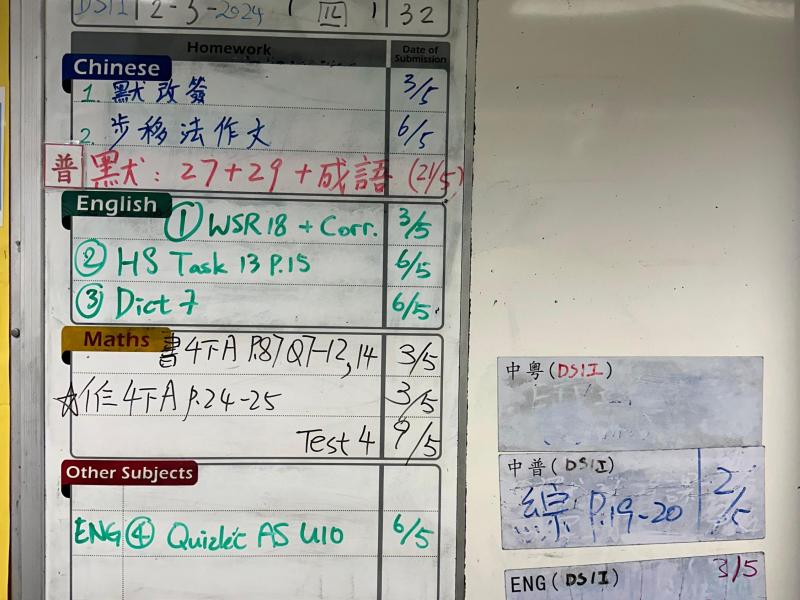 2-5-2024 ( 四 ) 32
Homework Date of Submission
Chinese
1. 默改簽 3/5
2. 步移法作文 6/5
普 默: 27+29+成語 (21/5)
English
① WSR 18 + Corr. 3/5
② HS Task 13 P.15 6/5
③ Dict 7 6/5
Maths
書 4下A P.87 Q7-12, 14 3/5
☆ 4下A p.24-25 3/5
Test 4 9/5
Other Subjects
ENG ④ Quizlet AS U10 6/5
中粵(DSII)
中普(DSII)
綜 P.19-20 2/5
ENG(DSII) 3/5